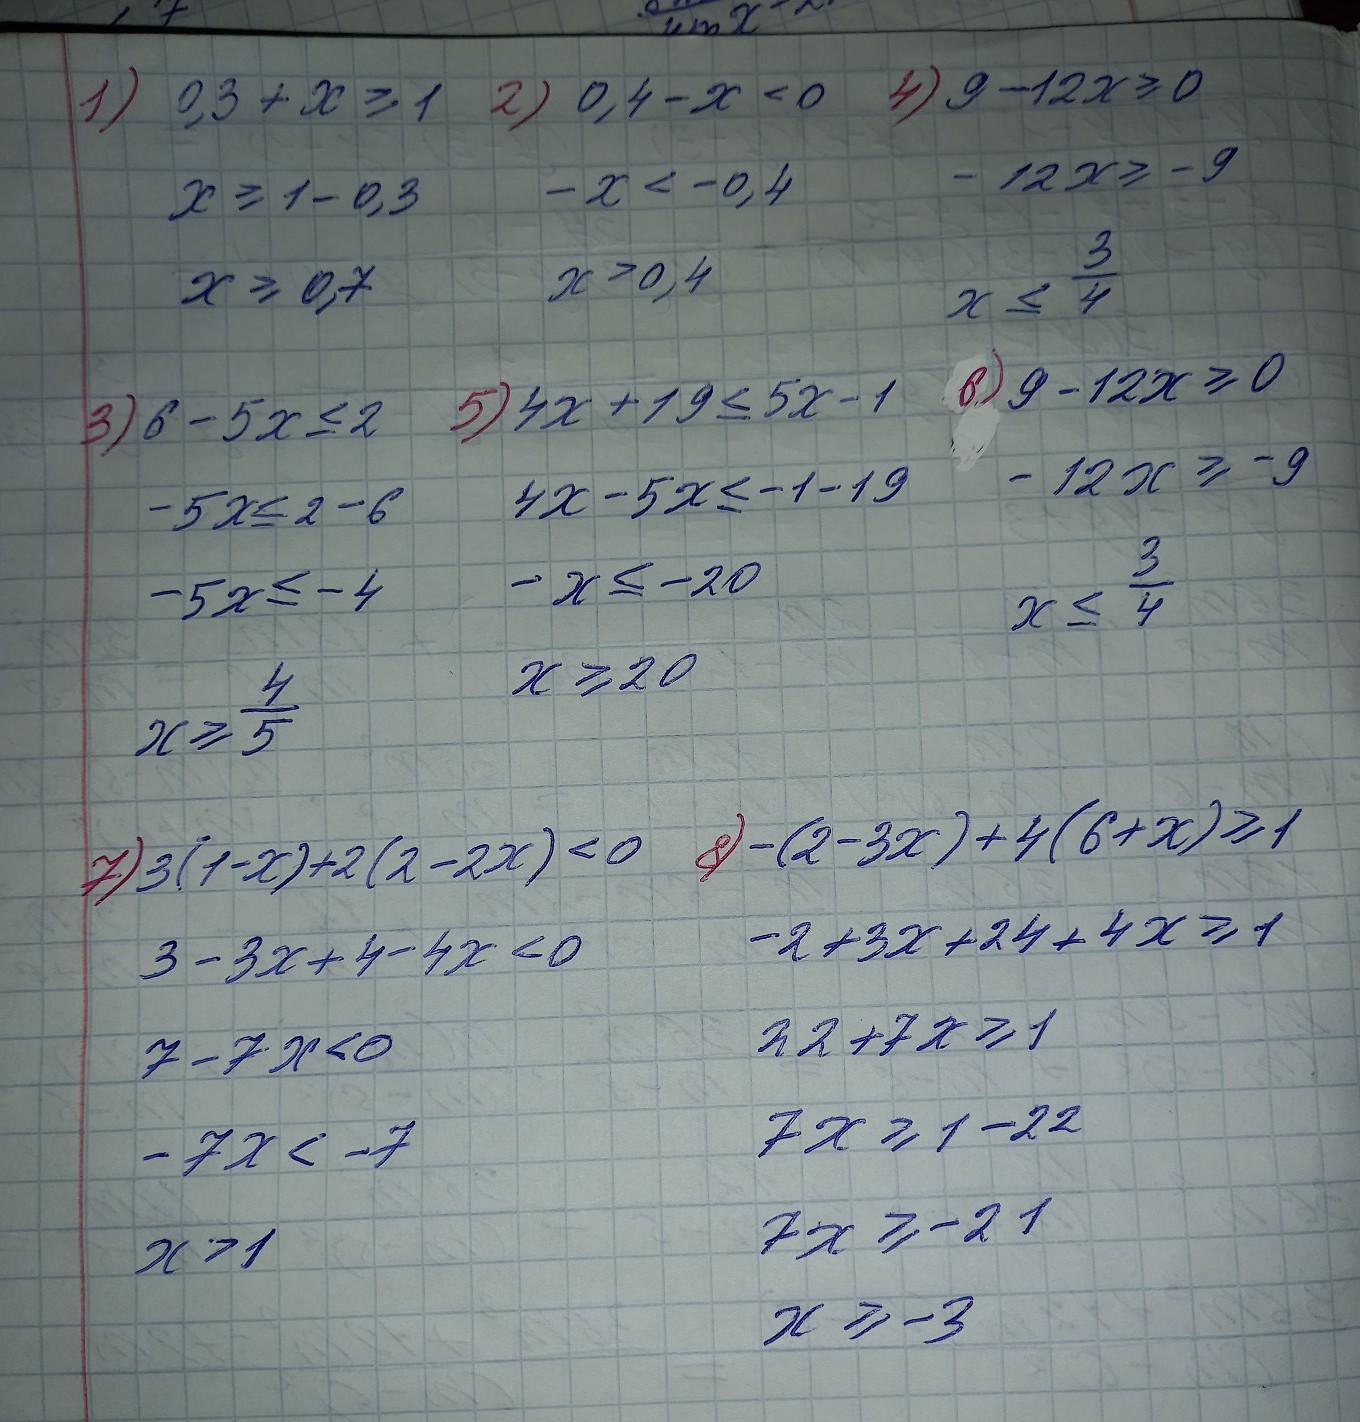 1) 0,3 + x ≥ 1
x ≥ 1 - 0,3
x ≥ 0,7
2) 0,4 - x < 0
- x < -0,4
x > 0,4
4) 9 - 12x ≥ 0
- 12x ≥ -9
x ≤ 3/4
3) 6 - 5x ≤ 2
-5x ≤ 2 - 6
-5x ≤ -4
x ≥ 4/5
5) 4x + 19 ≤ 5x - 1
4x - 5x ≤ -1 - 19
- x ≤ -20
x ≥ 20
6) 9 - 12x ≥ 0
- 12x ≥ -9
x ≤ 3/4
7) 3(1-x)+2(2-2x) < 0
3 - 3x + 4 - 4x < 0
7 - 7x < 0
- 7x < -7
x > 1
8) -(2-3x)+4(6+x) ≥ 1
-2+3x+24+4x ≥ 1
22+7x ≥ 1
7x ≥ 1 - 22
7x ≥ -21
x ≥ -3